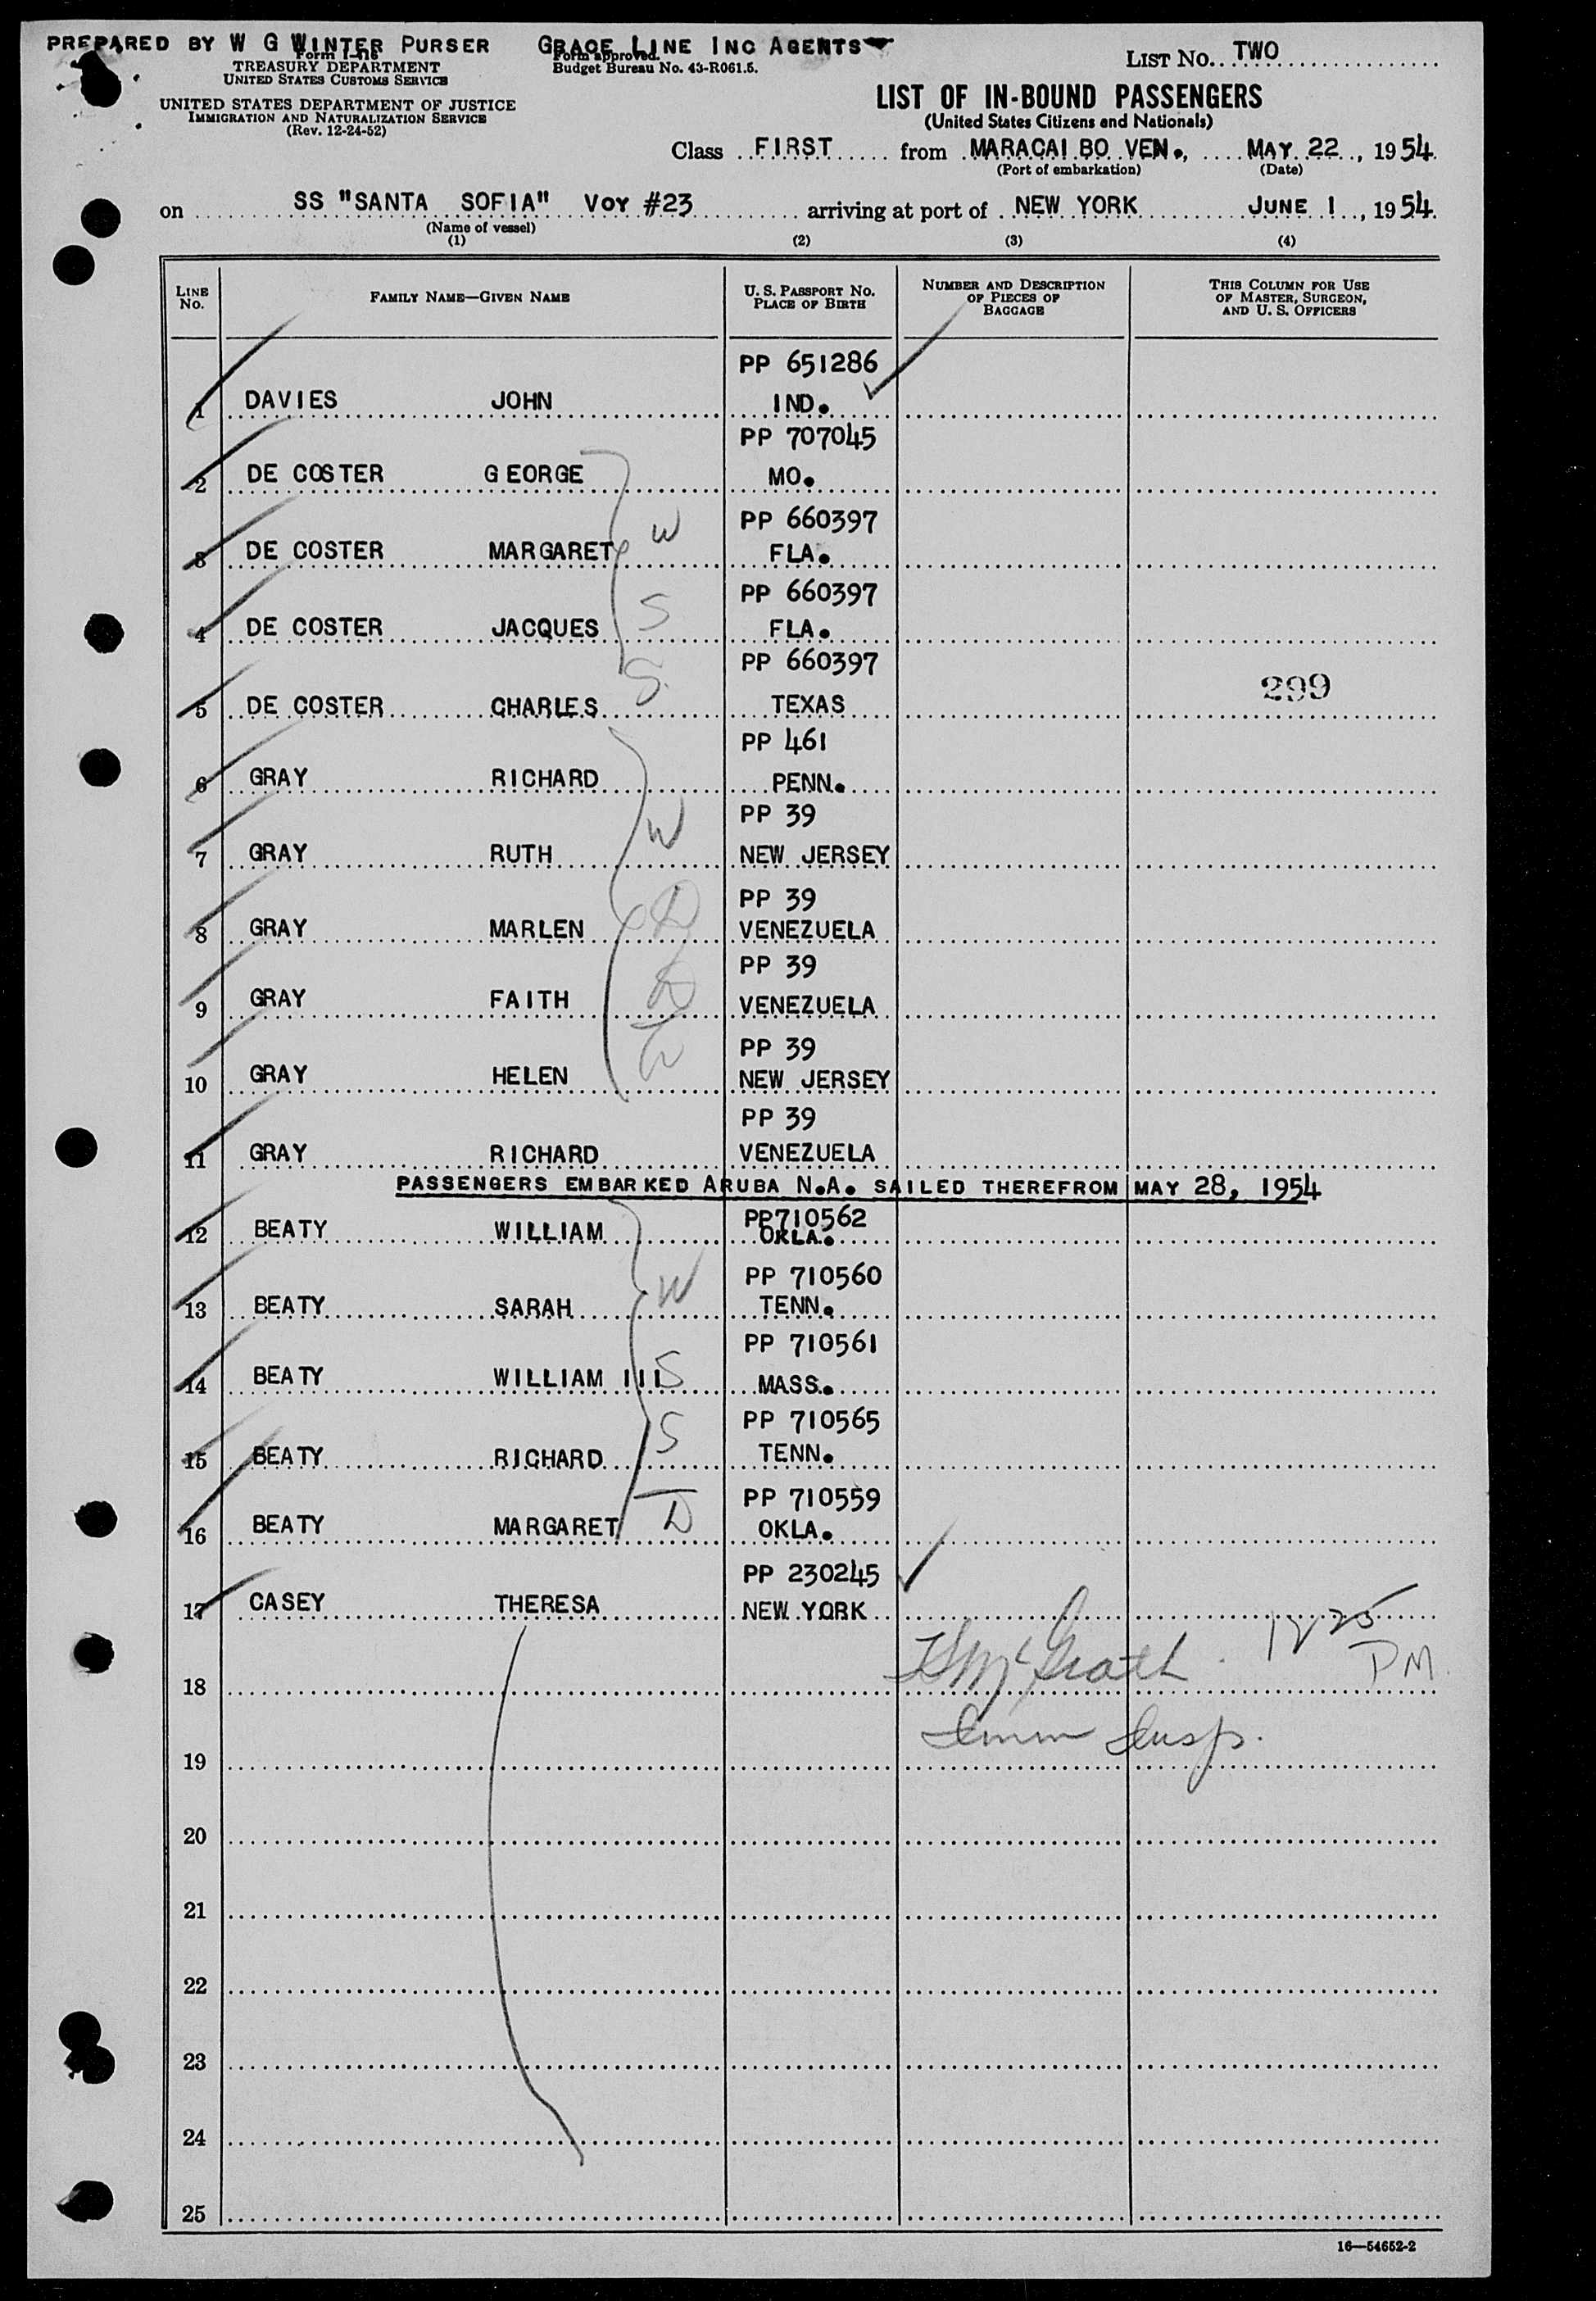 PREPARED BY W G WINTER PURSER GRACE LINE INC AGENTS
Form I-416
TREASURY DEPARTMENT
UNITED STATES CUSTOMS SERVICE
Form approved.
Budget Bureau No. 43-R061.5.
LIST NO. TWO
UNITED STATES DEPARTMENT OF JUSTICE
IMMIGRATION AND NATURALIZATION SERVICE
(Rev. 12-24-52)
LIST OF IN-BOUND PASSENGERS
(United States Citizens and Nationals)
Class FIRST from MARACAIBO VEN., MAY 22, 1954
(Port of embarkation) (Date)
on SS "SANTA SOFIA" VOY #23 arriving at port of NEW YORK JUNE 1, 1954
(Name of vessel)
(1) (2) (3) (4)
LINE No. FAMILY NAME—GIVEN NAME U. S. PASSPORT NO. PLACE OF BIRTH NUMBER AND DESCRIPTION OF PIECES OF BAGGAGE THIS COLUMN FOR USE OF MASTER, SURGEON, AND U. S. OFFICERS
PP 651286
1 DAVIES JOHN IND.
PP 707045
2 DE COSTER GEORGE MO.
W PP 660397
3 DE COSTER MARGARET FLA.
PP 660397
4 DE COSTER JACQUES S FLA.
PP 660397
299
5 DE COSTER CHARLES S. TEXAS
PP 461
6 GRAY RICHARD PENN.
PP 39
7 GRAY RUTH W NEW JERSEY
PP 39
8 GRAY MARLEN D VENEZUELA
PP 39
9 GRAY FAITH D VENEZUELA
PP 39
10 GRAY HELEN NEW JERSEY
PP 39
11 GRAY RICHARD VENEZUELA
PASSENGERS EMBARKED ARUBA N.A. SAILED THEREFROM MAY 28, 1954
PP710562
12 BEATY WILLIAM OKLA.
PP 710560
13 BEATY SARAH W TENN.
PP 710561
14 BEATY WILLIAM III S MASS.
PP 710565
15 BEATY RICHARD S TENN.
PP 710559
16 BEATY MARGARET D OKLA.
PP 230245
17 CASEY THERESA NEW YORK
McGrath 12 25 PM.
18
Imm Insp.
19
20
21
22
23
24
25
16—54652-2